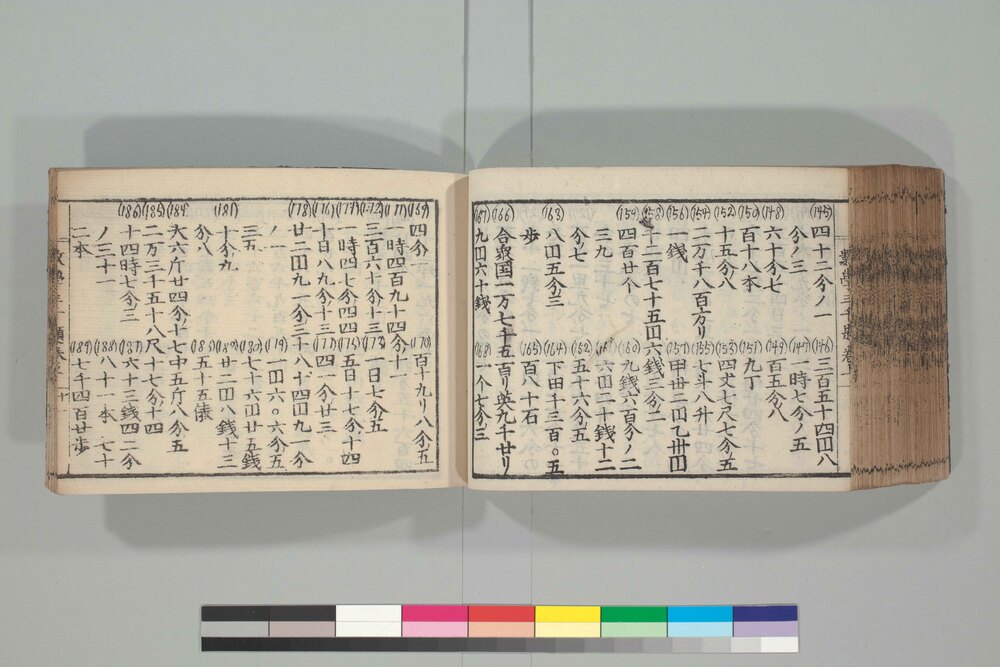 (145) 四十二分ノ一 (146) 三百五十四円八
分ノ三 (147) 一時七分ノ五
(148) 六十分ノ七 (149) 百五分ノ八
(150) 百十八本 (151) 九丁
(152) 十五分ノ八 (153) 四丈七尺七分五
(154) 二万千八百方リ (155) 七斗八升廿四分
(156) 一銭 (157) 甲卅二円乙卅円
(158) 十二百七十五円六銭三分二
(159) 四百廿个 (160) 九銭六百分ノ二
三九 六円二十銭十二
分ノ七 (162) 五十六分ノ五
(163) 八円五分三 (164) 下田千三百〇五
歩 (165) 百八十石
(166) 合衆国一万七千五百リ英九千廿リ
(167) 九円六十銭 (168) 一个七分三
(169) 四分一 (170) 百十九リ八分五
(171) 一時四百九十四分十一
(172) 三百六十分十三 (173) 一日七分五
(174) 一時四七分四四 (175) 五日十七分十四
(176) 十日八九分十三 (177) 四一分廿三
(178) 廿二円九一分三十八十四円九一分
ノ一 (179) 一円六〇六分五
三五 (180) 七十六円廿五銭
(181) 十分九 (182) 廿二円八銭十三
分八 (183) 五十五俵
(184) 大六斤廿四分十七中五斤八分五
(185) 二万三千五十八尺八十七分十四
(186) 十四時七分二 (187) 六十三銭四二分
ノ三十一 (188) 八十一本七十
二本 (189) 七千四百廿歩